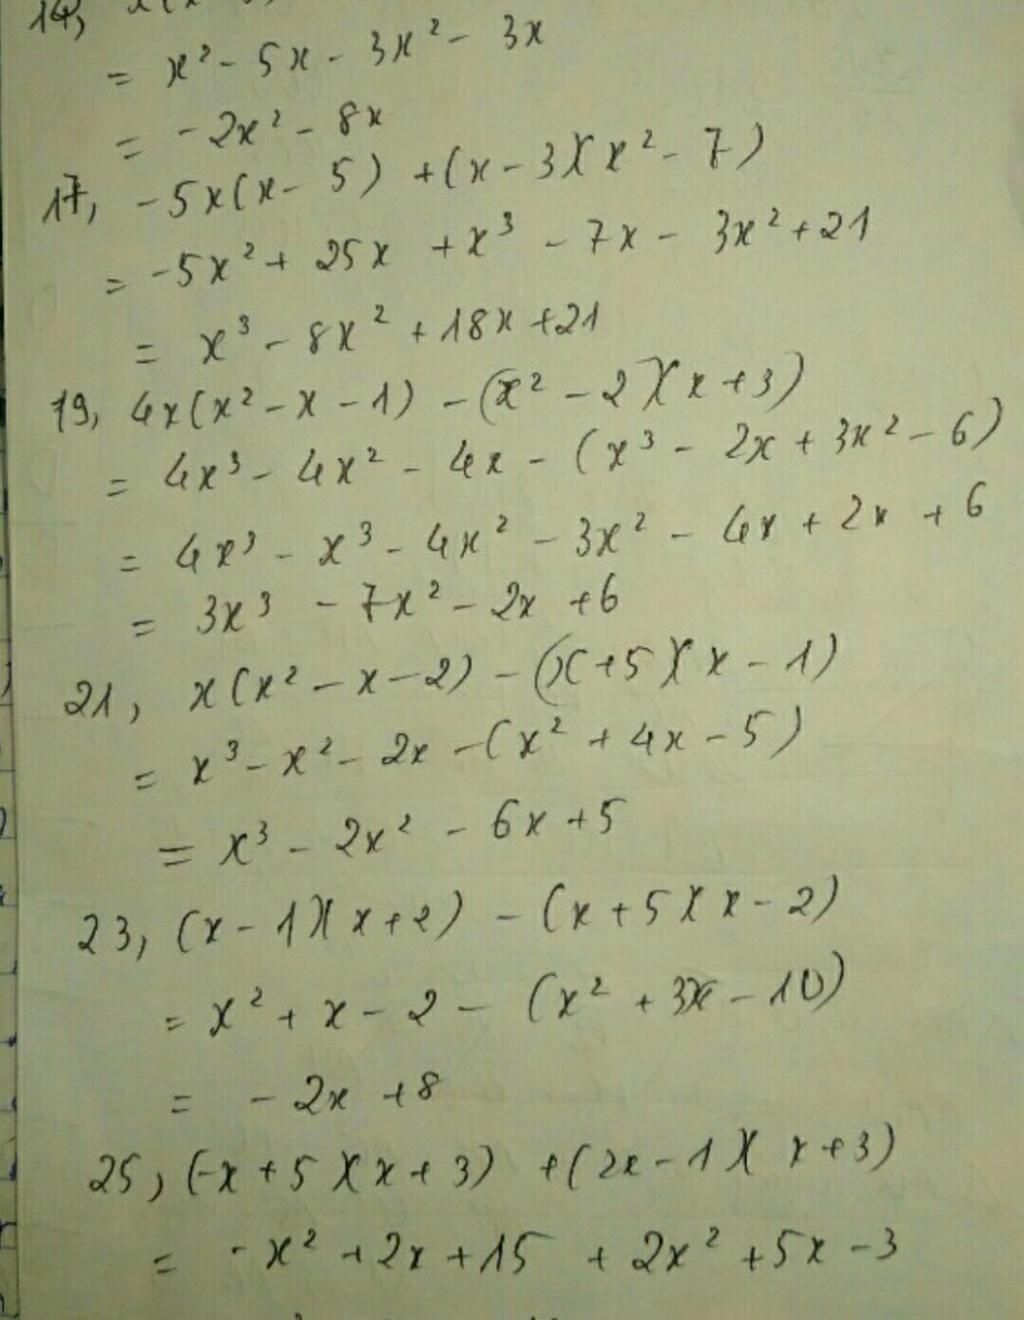 14,
= x² - 5x - 3x² - 3x
= -2x² - 8x
17, -5x(x - 5) + (x - 3)(x² - 7)
= -5x² + 25x + x³ - 7x - 3x² + 21
= x³ - 8x² + 18x + 21
19, 4x(x² - x - 1) - (x² - 2)(x + 3)
= 4x³ - 4x² - 4x - (x³ - 2x + 3x² - 6)
= 4x³ - x³ - 4x² - 3x² - 4x + 2x + 6
= 3x³ - 7x² - 2x + 6
21, x(x² - x - 2) - (x + 5)(x - 1)
= x³ - x² - 2x - (x² + 4x - 5)
= x³ - 2x² - 6x + 5
23, (x - 1)(x + 2) - (x + 5)(x - 2)
= x² + x - 2 - (x² + 3x - 10)
= -2x + 8
25, (-x + 5)(x + 3) + (2x - 1)(x + 3)
= -x² + 2x + 15 + 2x² + 5x - 3